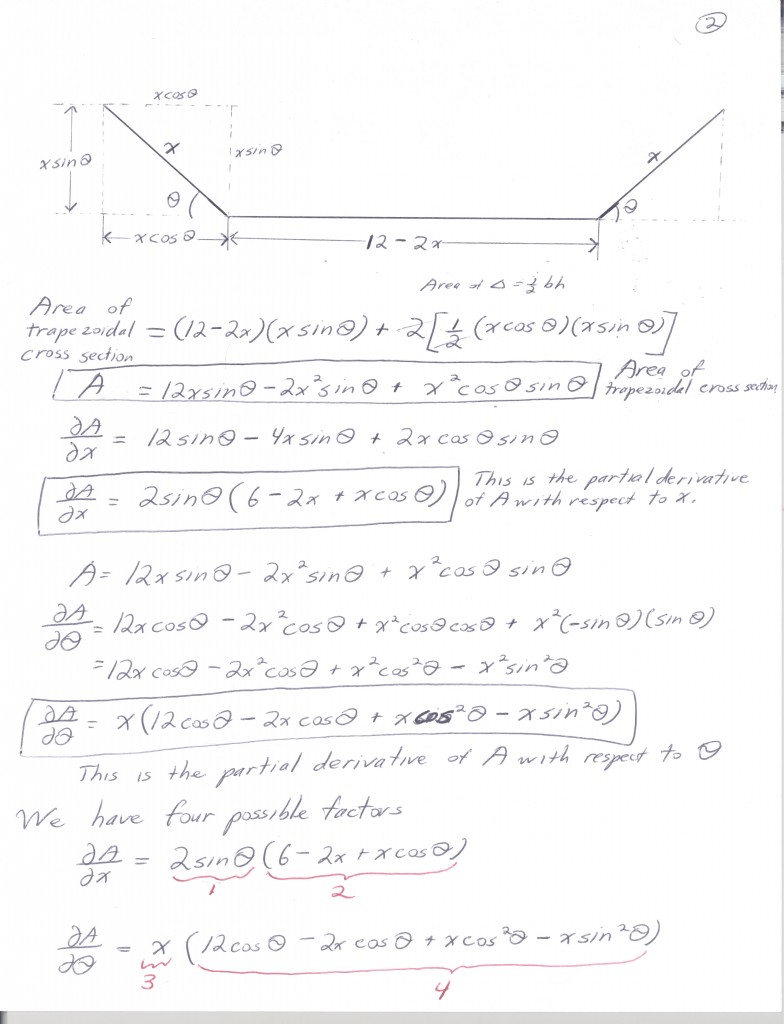 2
x cos θ
x sin θ
x
x sin θ
x
θ
θ
x cos θ
12 - 2x
Area of Δ = 1/2 bh
Area of
trapezoidal = (12-2x)(x sin θ) + 2[1/2 (x cos θ)(x sin θ)]
cross section
A = 12x sin θ - 2x² sin θ + x² cos θ sin θ
Area of
trapezoidal cross section
∂A/∂x = 12 sin θ - 4x sin θ + 2x cos θ sin θ
∂A/∂x = 2 sin θ (6 - 2x + x cos θ)
This is the partial derivative
of A with respect to x.
A = 12x sin θ - 2x² sin θ + x² cos θ sin θ
∂A/∂θ = 12x cos θ - 2x² cos θ + x² cos θ cos θ + x² (-sin θ)(sin θ)
= 12x cos θ - 2x² cos θ + x² cos² θ - x² sin² θ
∂A/∂θ = x(12 cos θ - 2x cos θ + x cos² θ - x sin² θ)
This is the partial derivative of A with respect to θ
We have four possible factors
∂A/∂x = 2 sin θ (6 - 2x + x cos θ)
1 2
∂A/∂θ = x (12 cos θ - 2x cos θ + x cos² θ - x sin² θ)
3 4